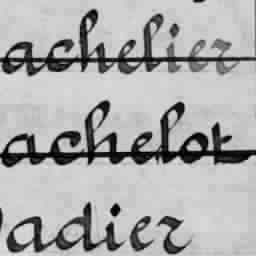 achelier
achelot
adier